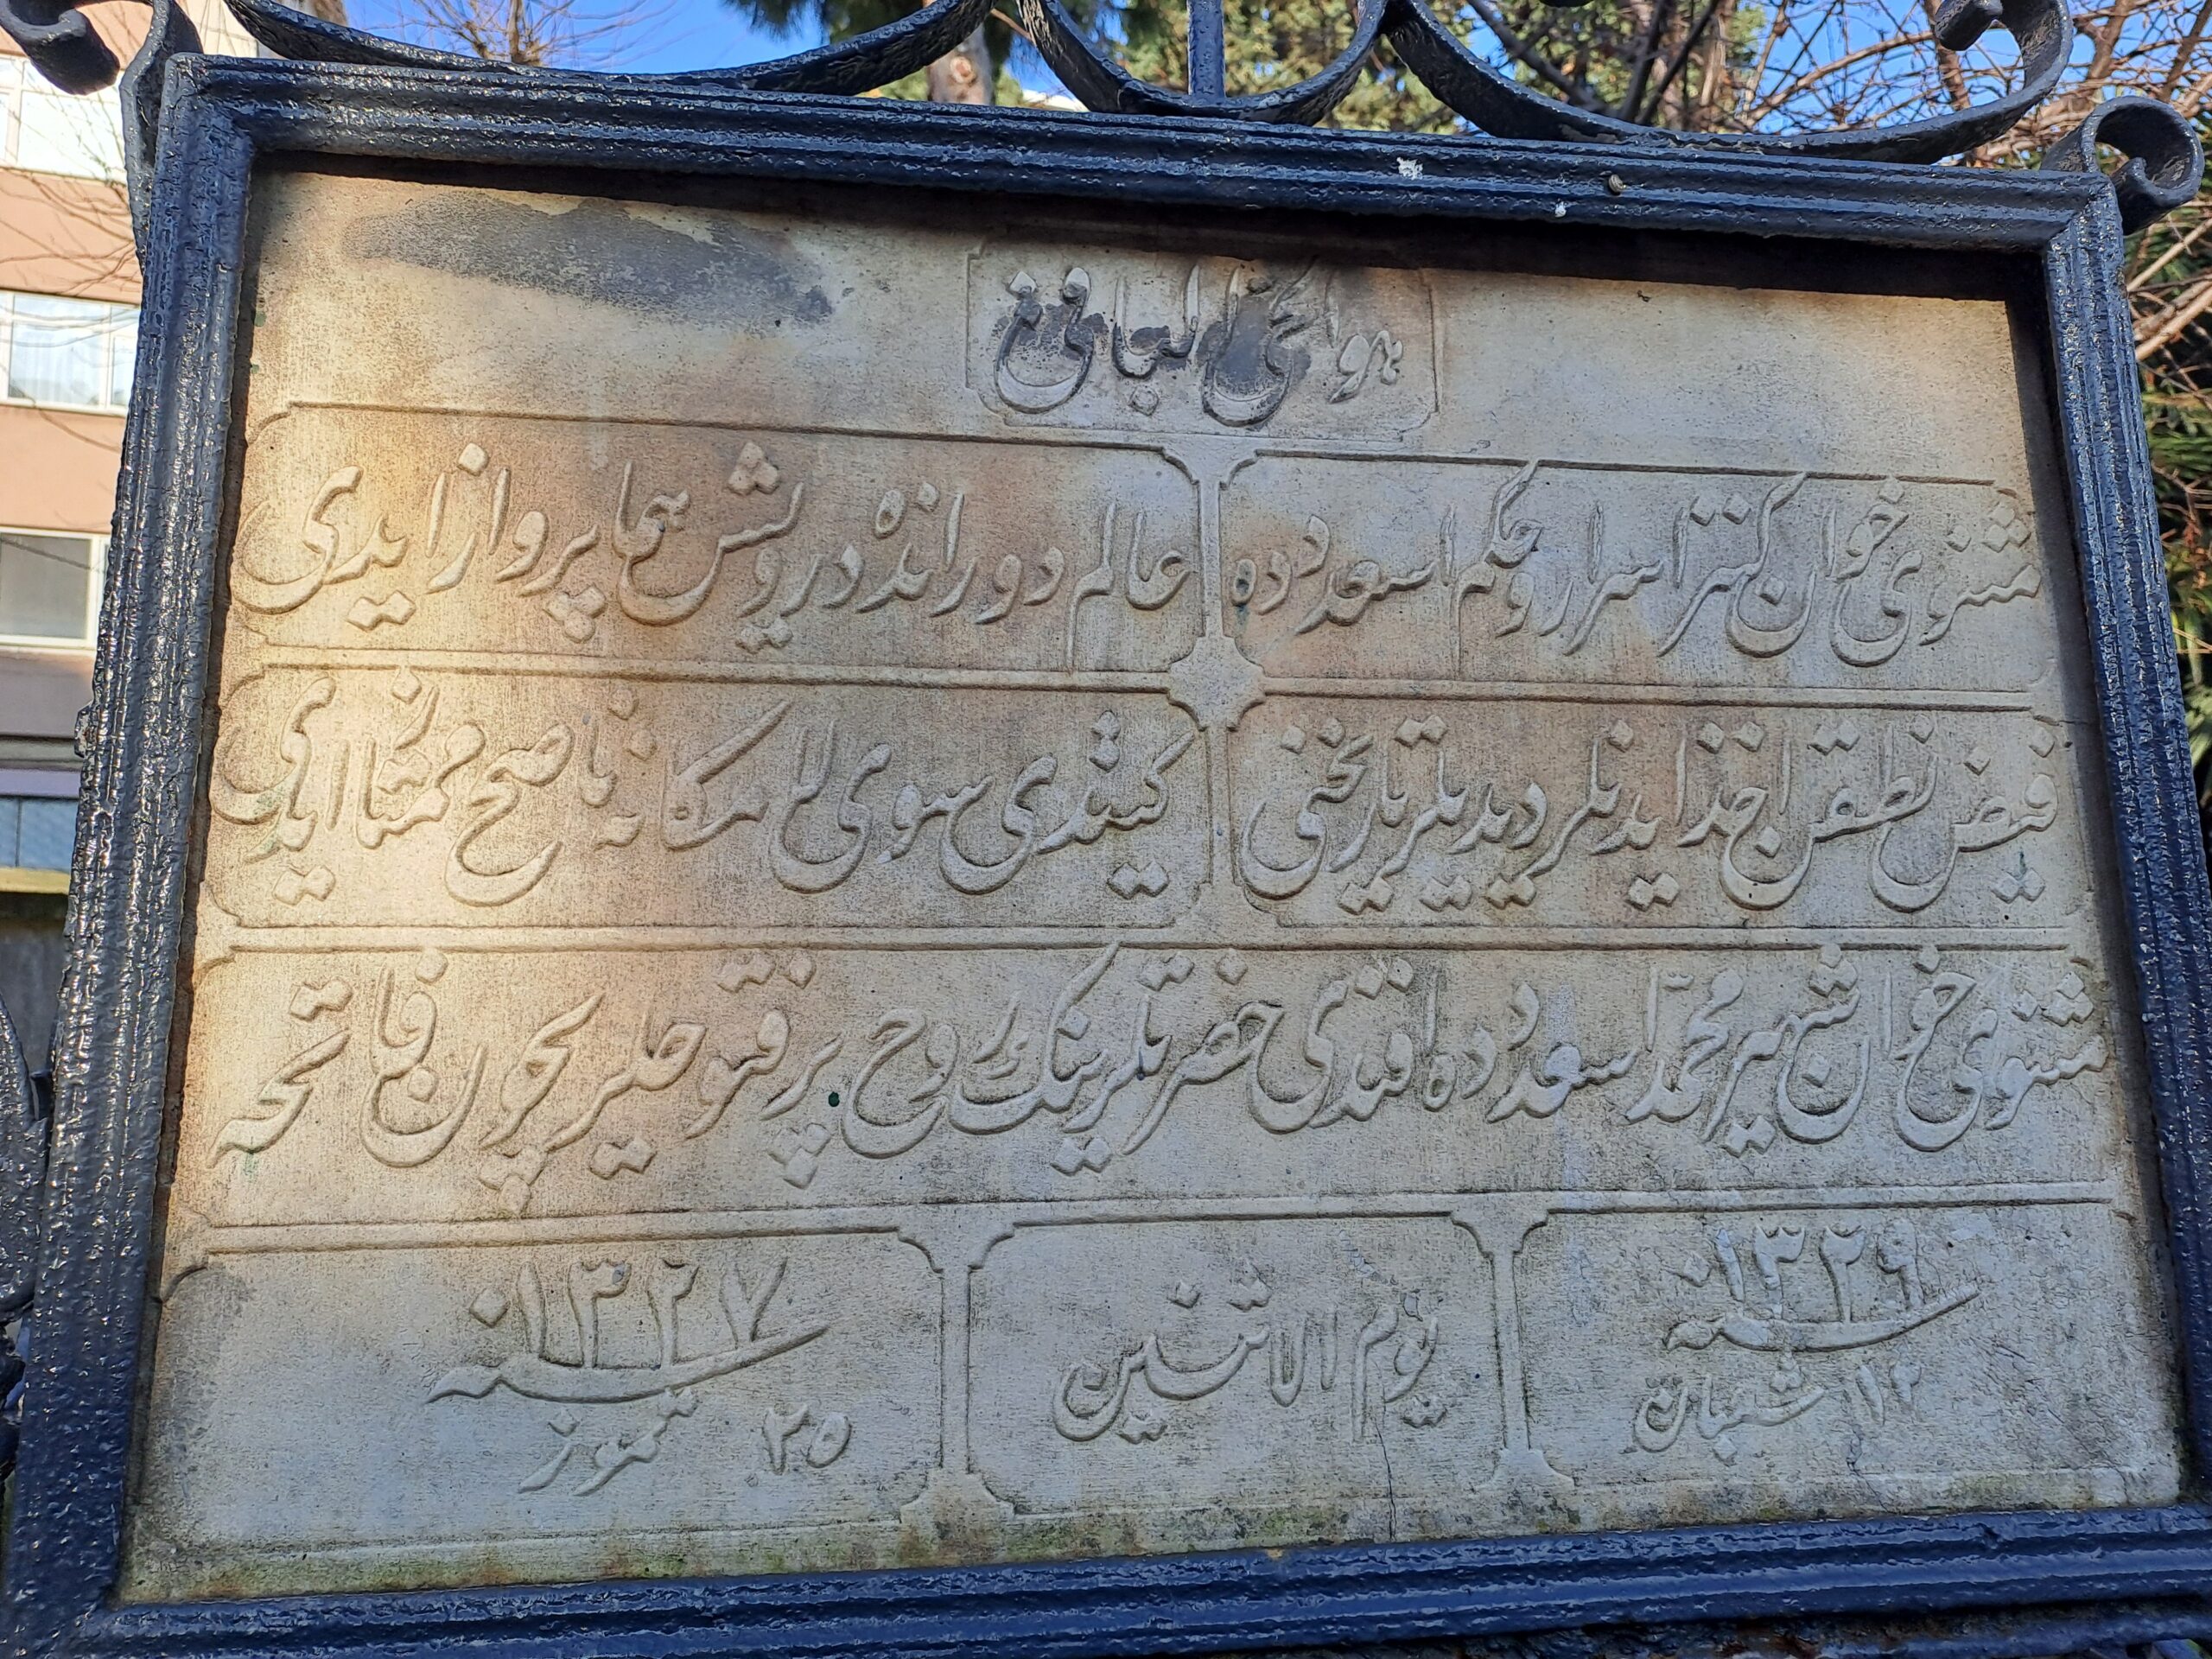 هو الحی الباقی
مثنوی خوان کنز اسرار و حکم اسعد دده
عالم دورانده درویش هما پرواز ایدی
فیض نطقن اخذ ایدنلر دیدیلر تاریخنی
کیتدی سوی لامکانه ناصح ممتاز ایدی
مثنوی خوان شهیر محمد اسعد دده افندی حضرتلرینک روح پرفتوحلریچون فاتحه
سنه ١٣٢٩
١٢ شعبان
یوم الاثنین
سنه ١٣٢٧
٢٥ تموز